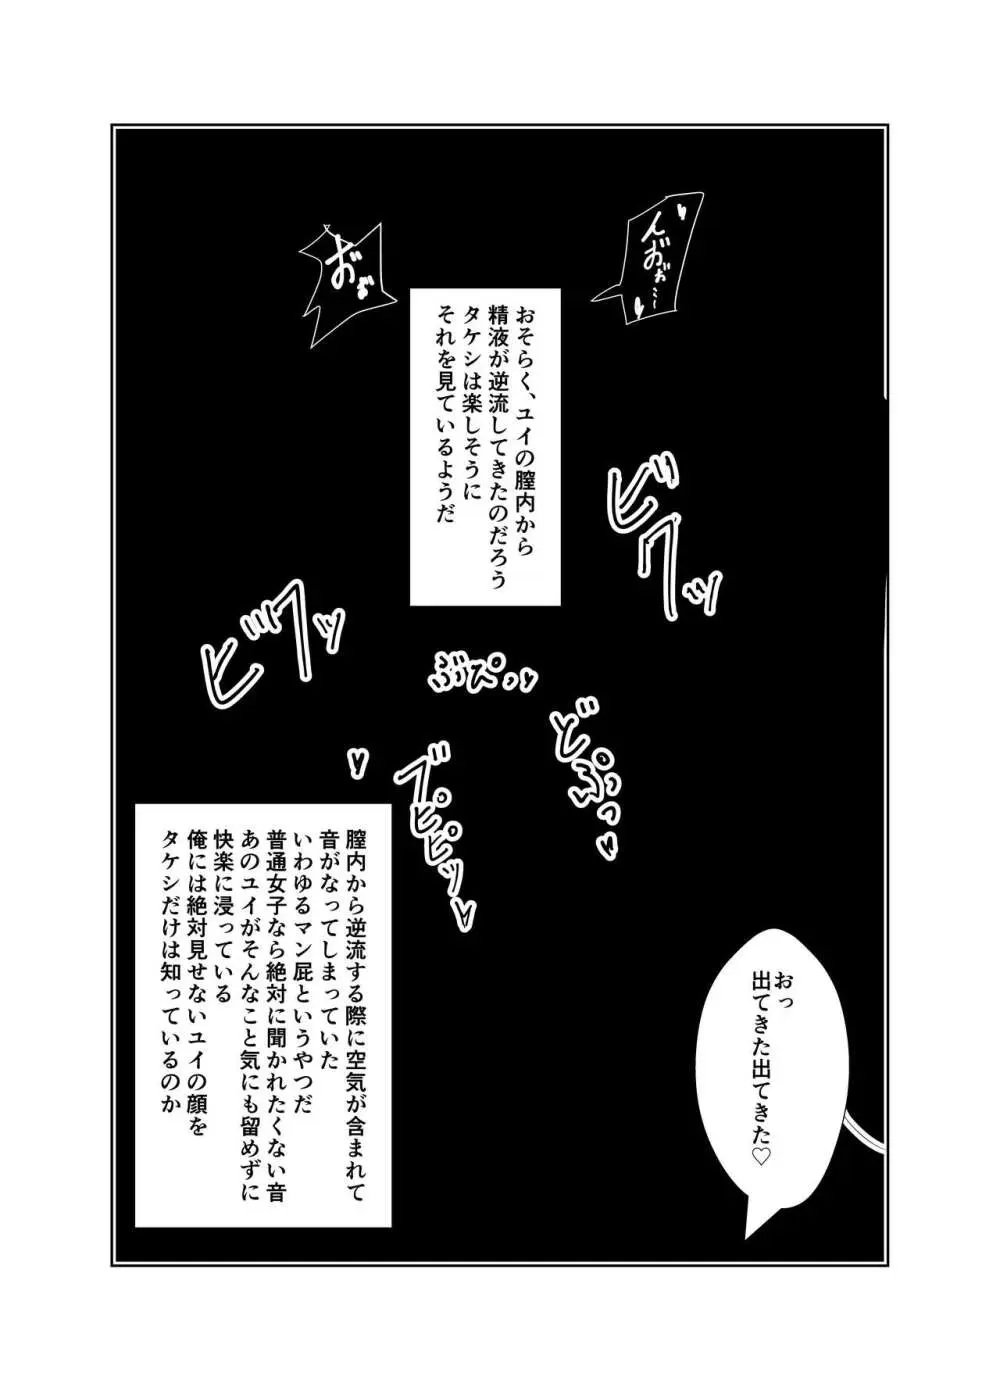 んおぉ…
おそらく、ユイの膣内から
精液が逆流してきたのだろう
タケシは楽しそうに
それを見ているようだ
お゛ぉ
ビクッ
ビクッ
ぶぴっ
どぷっ
ブピピッ
おっ
出てきた出てきた♡
膣内から逆流する際に空気が含まれて
音がなってしまっていた
いわゆるマン屁というやつだ
普通女子なら絶対に聞かれたくない音
あのユイがそんなこと気にも留めずに
快楽に浸っている
俺には絶対見せないユイの顔を
タケシだけは知っているのか